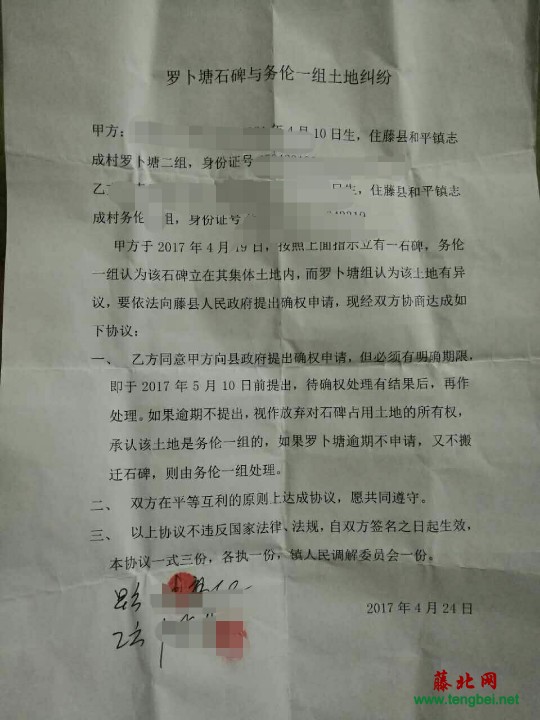 罗卜塘石碑与务伦一组土地纠纷
甲方：年4月10日生，住藤县和平镇志
成村罗卜塘二组，身份证号
乙日生，住藤县和平镇志
成村务伦组，身份证号
甲方于2017年4月19日，按照上面指示立有一石碑，务伦
一组认为该石碑立在其集体土地内，而罗卜塘组认为该土地有异
议，要依法向藤县人民政府提出确权申请，现经双方协商达成如
下协议：
一、乙方同意甲方向县政府提出确权申请，但必须有明确期限，
即于2017年5月10日前提出，待确权处理有结果后，再作
处理。如果逾期不提出，视作放弃对石碑占用土地的所有权，
承认该土地是务伦一组的，如果罗卜塘逾期不申请，又不搬
迁石碑，则由务伦一组处理。
二、双方在平等互利的原则上达成协议，愿共同遵守。
三、以上协议不违反国家法律、法规，自双方签名之日起生效，
本协议一式三份，各执一份，镇人民调解委员会一份。
2017年4月24日
藤北网
www.tengbei.net